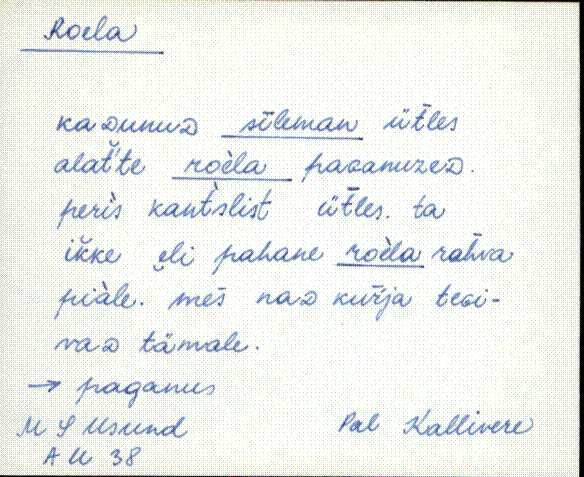 Roela
kaᴅunuᴅ süleman üt̆les
alat̆'te roèla paɢanuzeᴅ.
peris̀ kant̀slist üt̆les. ta
ik̆ke ᴗeli pahane roèla rah̆va
piàle. mes̀ naᴅ kur̆ja teɢi-
vaᴅ tämale.
→ paganus
M S Usund
AU 38
Pal Kallivere